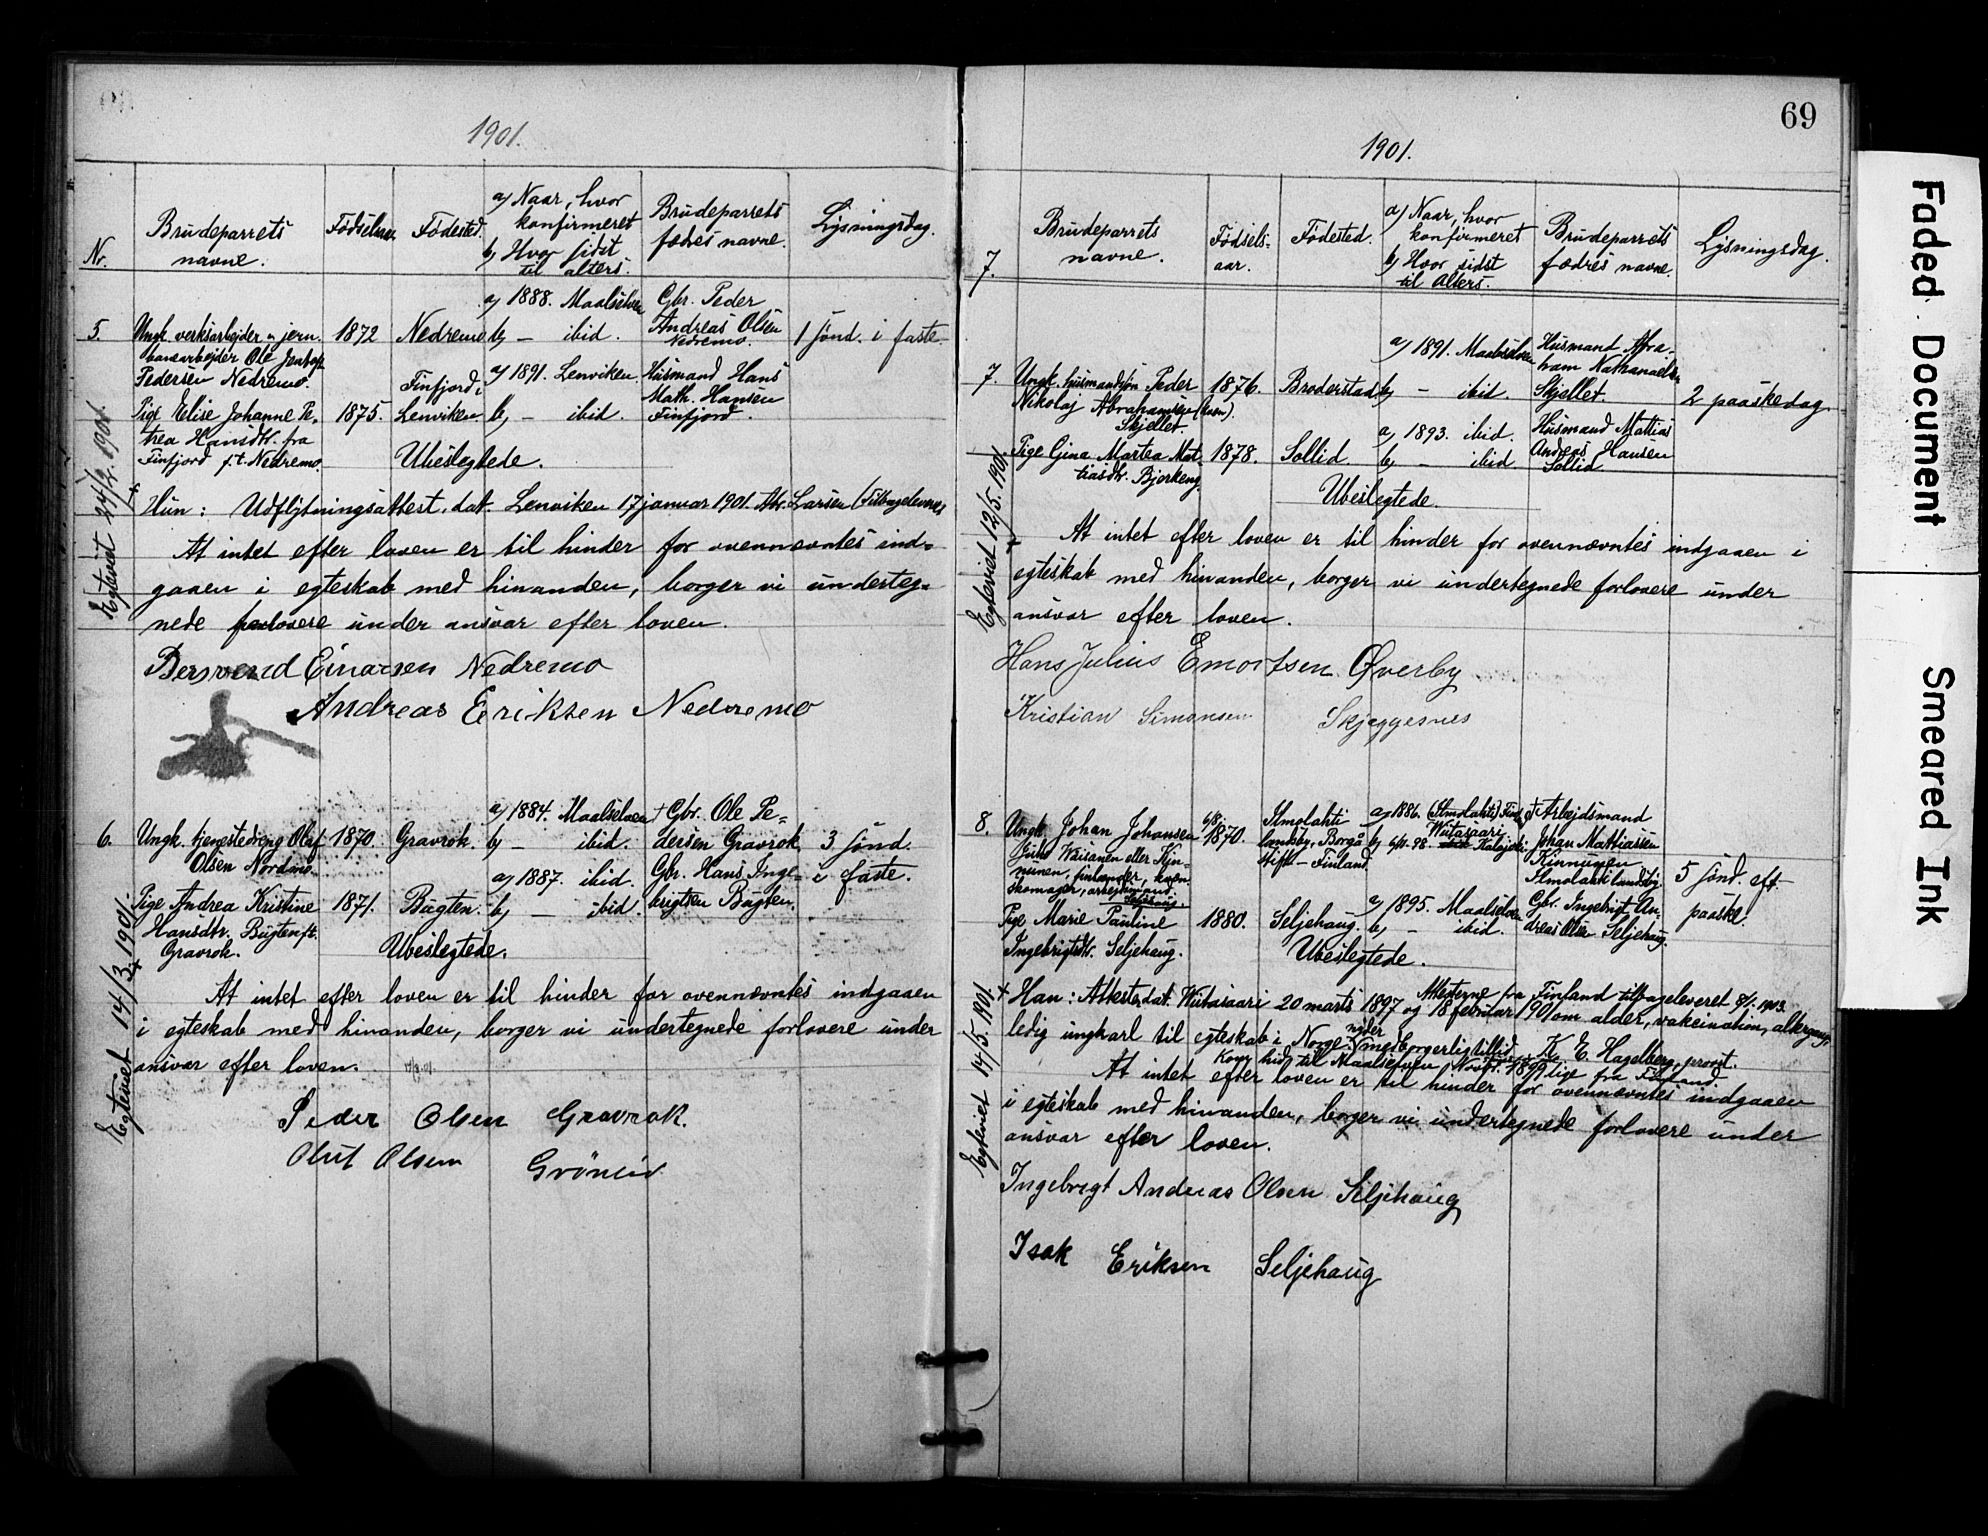 1901.
Nr.
Brudeparrets
navne.
Fødselsaar
Fødested.
a) Naar, hvor
konfirmeret
b) Hvor sidst
til alters.
Brudeparrets
fædres navne.
Lysningsdag.
5.
Ungk. verksarbejder & jern-
banearbejder Ole
Pedersen Nedremo.
1872
Nedremo
a) 1888. Maalselven
b) — ibid.
Gbr. Peder
Andreas Olsen
Nedremo.
1 sønd. i faste.
Pige Elise Johanne Pe-
trea Hansdtr. fra
Finfjord f.t. Nedremo.
1875.
Finfjord i
Lenviken.
a) 1891. Lenviken.
b) — ibid.
Husmand Hans
Math. Hansen
Finfjord.
Ubeslegtede.
Hun: Udflytningsattest, dat. Lenviken 17 januar 1901. Larsen (Tilbageleveret
At intet efter loven er til hinder for ovennævntes ind-
gaaen i egteskab med hinanden, borger vi underteg-
nede forlovere under ansvar efter loven.
Egteviet 1901.
Bersvend Einarsen Nedremo
Andreas Eriksen Nedremo
6.
Ungk. tjenestedreng Oluf
Olsen Nordmo.
1870.
Gravrok.
a) 1884. Maalselven
b) — ibid.
† Gbr. Ole Pe-
dersen Gravrok
3 sønd.
i faste.
Pige Andrea Kristine
Hansdtr. Bugten ft.
Gravrok.
1871.
Bugten.
a) 1887. ibid.
b) — ibid.
Gbr. Hans Inge-
brigtsen Bugten.
Ubeslegtede.
At intet efter loven er til hinder for ovennævntes indgaaen
i egteskab med hinanden, borger vi undertegnede forlovere under
ansvar efter loven.
Egteviet 14/3. 1901.
Peder Olsen Gravrok.
Oluf Olsen Grønlid
69
1901.
7.
Brudeparrets
navne.
Fødsels-
aar.
Fødested.
a) Naar, hvor
konfirmeret
b) Hvor sidst
til Alters.
Brudeparrets
fædres navne.
Lysningsdag.
7.
Ungk. husmandssøn Peder
Nikolaj Abrahamsen (kven).
Skjellet.
1876.
Broderstad
a) 1891. Maalselven
b) — ibid.
Husmand Abra-
ham Nathanaelsen
Skjellet.
2 paaskedag.
Pige Gina Martea Mat-
tiasdtr. Bjorkeng.
1878.
Sollid.
a) 1893. ibid.
b) — ibid
Husmand Mattias
Andreas Hansen
Sollid
Ubeslegtede.
At intet efter loven er til hinder for ovennævntes indgaaen i
egteskab med hinanden, borger vi undertegnede forlovere under
ansvar efter loven.
Egteviet 12/5. 1901.
Hans Julius Emortsen Øverby
Kristian Simonsen Skjæggesnes
8.
Ungk. Johan Johansen
Juho Wiisanen eller Kin-
nunen, finlænder, kven
skomager, arbejdsmand
6/8.
1870.
Ilmolahti
landsby, Borgå
stift – Finland.
a) 1886. (Ilmolahti) Finl.
Wiitasaari.
b) 6/11. 98.
† Arbejdsmand
Johan Mattiassen
Kinnunen
Ilmolahti landsby
5 sønd. eft.
paaske.
Pige Marie Pauline
Ingebrigtsdtr. Seljehaug.
1880.
Seljehaug.
a) 1895. Maalselven
b) — ibid.
Gbr. Ingebrigt An-
dreas Olsen Seljehaug.
Ubeslegtede.
Attesterne fra Finland tilbageleveret 8/1. 1903.
Han: Attester, dat. Wiitasaari 20 marts 1897 og 18 februar 1901 om alder, vakcination, altergang,
ledig ungkarl til egteskab i Norge. nyder medborgerlig tillid. K. E. Hagelberg, provst.
Kom hid til Maalselven Novbr. 1899 lige fra Finland
At intet efter loven er til hinder for ovennævntes indgaaen
i egteskab med hinanden, borger vi undertegnede forlovere under
ansvar efter loven.
Egteviet 14/5. 1901.
Ingebrigt Andreas Olsen Seljehaug
Isak Eriksen Seljehaug
Faded Document
Smeared Ink